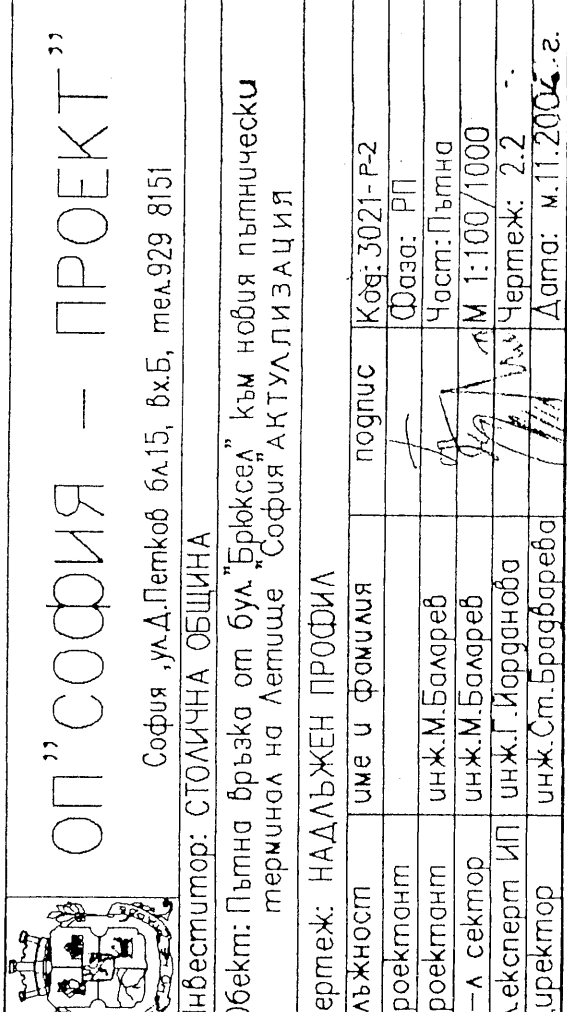 ОП"СОФИЯ – ПРОЕКТ"
София ,ул.Д.Петков бл.15, вх.Б, тел.929 8151
нвеститор: СТОЛИЧНА ОБЩИНА
Обект: Пътна връзка от бул."Брюксел" към новия пътнически
терминал на Летище "София" АКТУАЛЛИЗАЦИЯ
ертеж: НАДЛЪЖЕН ПРОФИЛ
лъжност име и фамилия подпис Код: 3021-Р-2
роектант Фаза: РП
роектант инж.М.Баларев Част:Пътна
–л сектор инж.М.Баларев М 1:100/1000
.експерт ИП инж.Г.Йорданова Чертеж: 2.2
иректор инж.Ст.Брадварева Дата: м.11.2006.г.